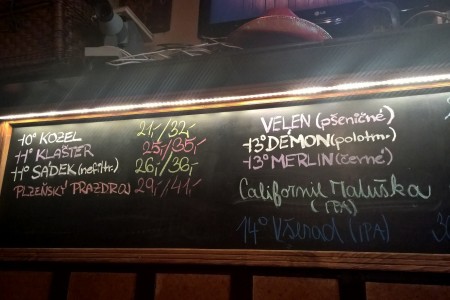 10° KOZEL 21,-/32,-
11° KLAŠTER 25,-/35,-
11° SÁDEK (nefiltr.) 26,-/36,-
PLZEŇSKÝ PRAZDROJ 29,-/41,-
VELEN (pšeničné)
13° DÉMON (polotm.)
13° MERLIN (černé)
Californie Matuška
(IPA)
14° Všerad (IPA)